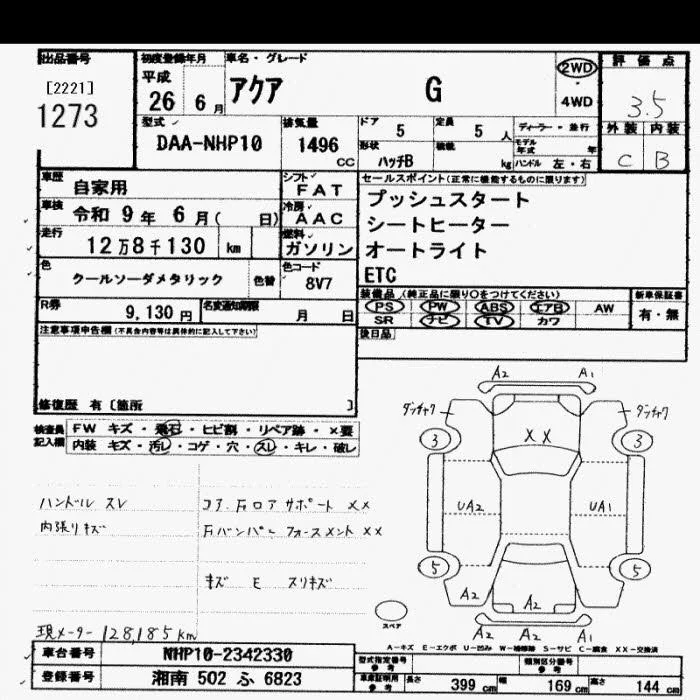 出品番号
[2221]
1273
初度登録年月
平成
26 6月
車名・グレード
アクア G
2WD
4WD
評価点
3.5
外装 内装
C B
型式
DAA-NHP10
排気量
1496 CC
ドア 5
定員 5 人
形状 ハッチB
積載 kg
ディーラー・並行
モデル年式 年
ハンドル 左・右
車歴 自家用
車検 令和 9年 6月( 日)
走行 12万8千130 km
シフト FAT
冷房 AAC
燃料 ガソリン
色 クールソーダメタリック
色替
色コード 8V7
R券 9,130 円
名変通知期限 月 日
セールスポイント(正常に機能するものに限ります)
プッシュスタート
シートヒーター
オートライト
ETC
装備品 (純正品に限り○をつけてください)
PS PW ABS エアB AW
SR ナビ TV カワ
新車保証書
有・無
後日品
注意事項申告欄(不具合内容等は具体的に記入して下さい)
修復歴 有 〔箇所 〕
検査員記入欄
FW キズ・飛石・ヒビ割・リペア跡・×要
内装 キズ・汚レ・コゲ・穴・スレ・キレ・破レ
ハンドル スレ
内張リキズ
コア.Fロアサポート XX
Fバンパーフォースメント XX
キズ E スリキズ
現メーター 128,185km
A2 A1
3 3
XX
UA2 UA1
5 5
A2 A2
A2 A2 A1
スペア
A-キズ E-エクボ U-凹ミ W-補修跡 S-サビ C-腐食 XX-交換済
車台番号 NHP10-2342330
登録番号 湘南 502 ふ 6823
型式指定番号 参考
類別区分番号 参考
車庫証明用 参考
長さ 399 cm
幅 169 cm
高さ 144 cm